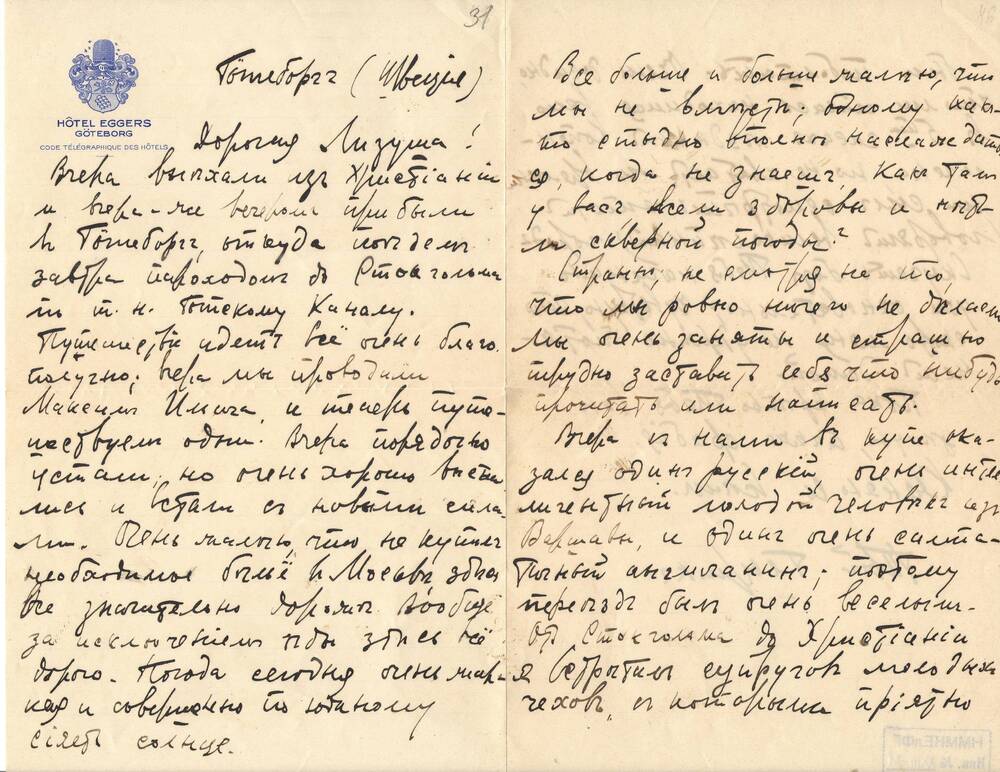 31
HÔTEL EGGERS
GÖTEBORG
CODE TÉLÉGRAPHIQUE DES HÔTELS
Гётеборгъ (Швеція)
Дорогая Лизуша!
Вчера выѣхали изъ Христіаніи
и вчера-же вечеромъ прибыли
въ Гётеборгъ, откуда поѣдемъ
завтра пароходомъ до Стокгольма
по т. н. Готскому Каналу.
Путешествіе идетъ всё очень благо
получно; вчера мы проводили
Максимъ Ильича, и теперь путе-
шествуемъ одни. Вчера порядочно
устали, но очень хорошо выспа
лись и встали съ новыми сила
ми. Очень жалѣю, что не купилъ
необходимое бельё въ Москвѣ, здѣсь
все значительно дороже. Вообще
за исключеніемъ ѣды здѣсь всё
дорого. Погода сегодня очень жар-
кая и совершенно по южному
сіяетъ солнце.
Все больше и больше жалѣю, что
мы не вмѣстѣ; одному какъ-
то стыдно вполнѣ наслаждать
ся, когда не знаешь, какъ тамъ
у васъ всѣ ли здоровы и нѣтъ
ли скверной погоды?
Странно, не смотря на то,
что мы ровно ничего не дѣлаемъ
мы очень заняты и страшно
трудно заставить себя что нибудь
прочитать или написать.
Вчера съ нами въ купе ока-
зался одинъ русскій, очень интел
лигентный молодой человѣкъ изъ
Варшавы, и одинъ очень симпа-
тичный англичанинъ; поэтому
переѣздъ былъ очень веселымъ.
Отъ Стокгольма до Христіаніи
я встрѣтилъ супруговъ молодыхъ
чеховъ, съ которыми пріятно